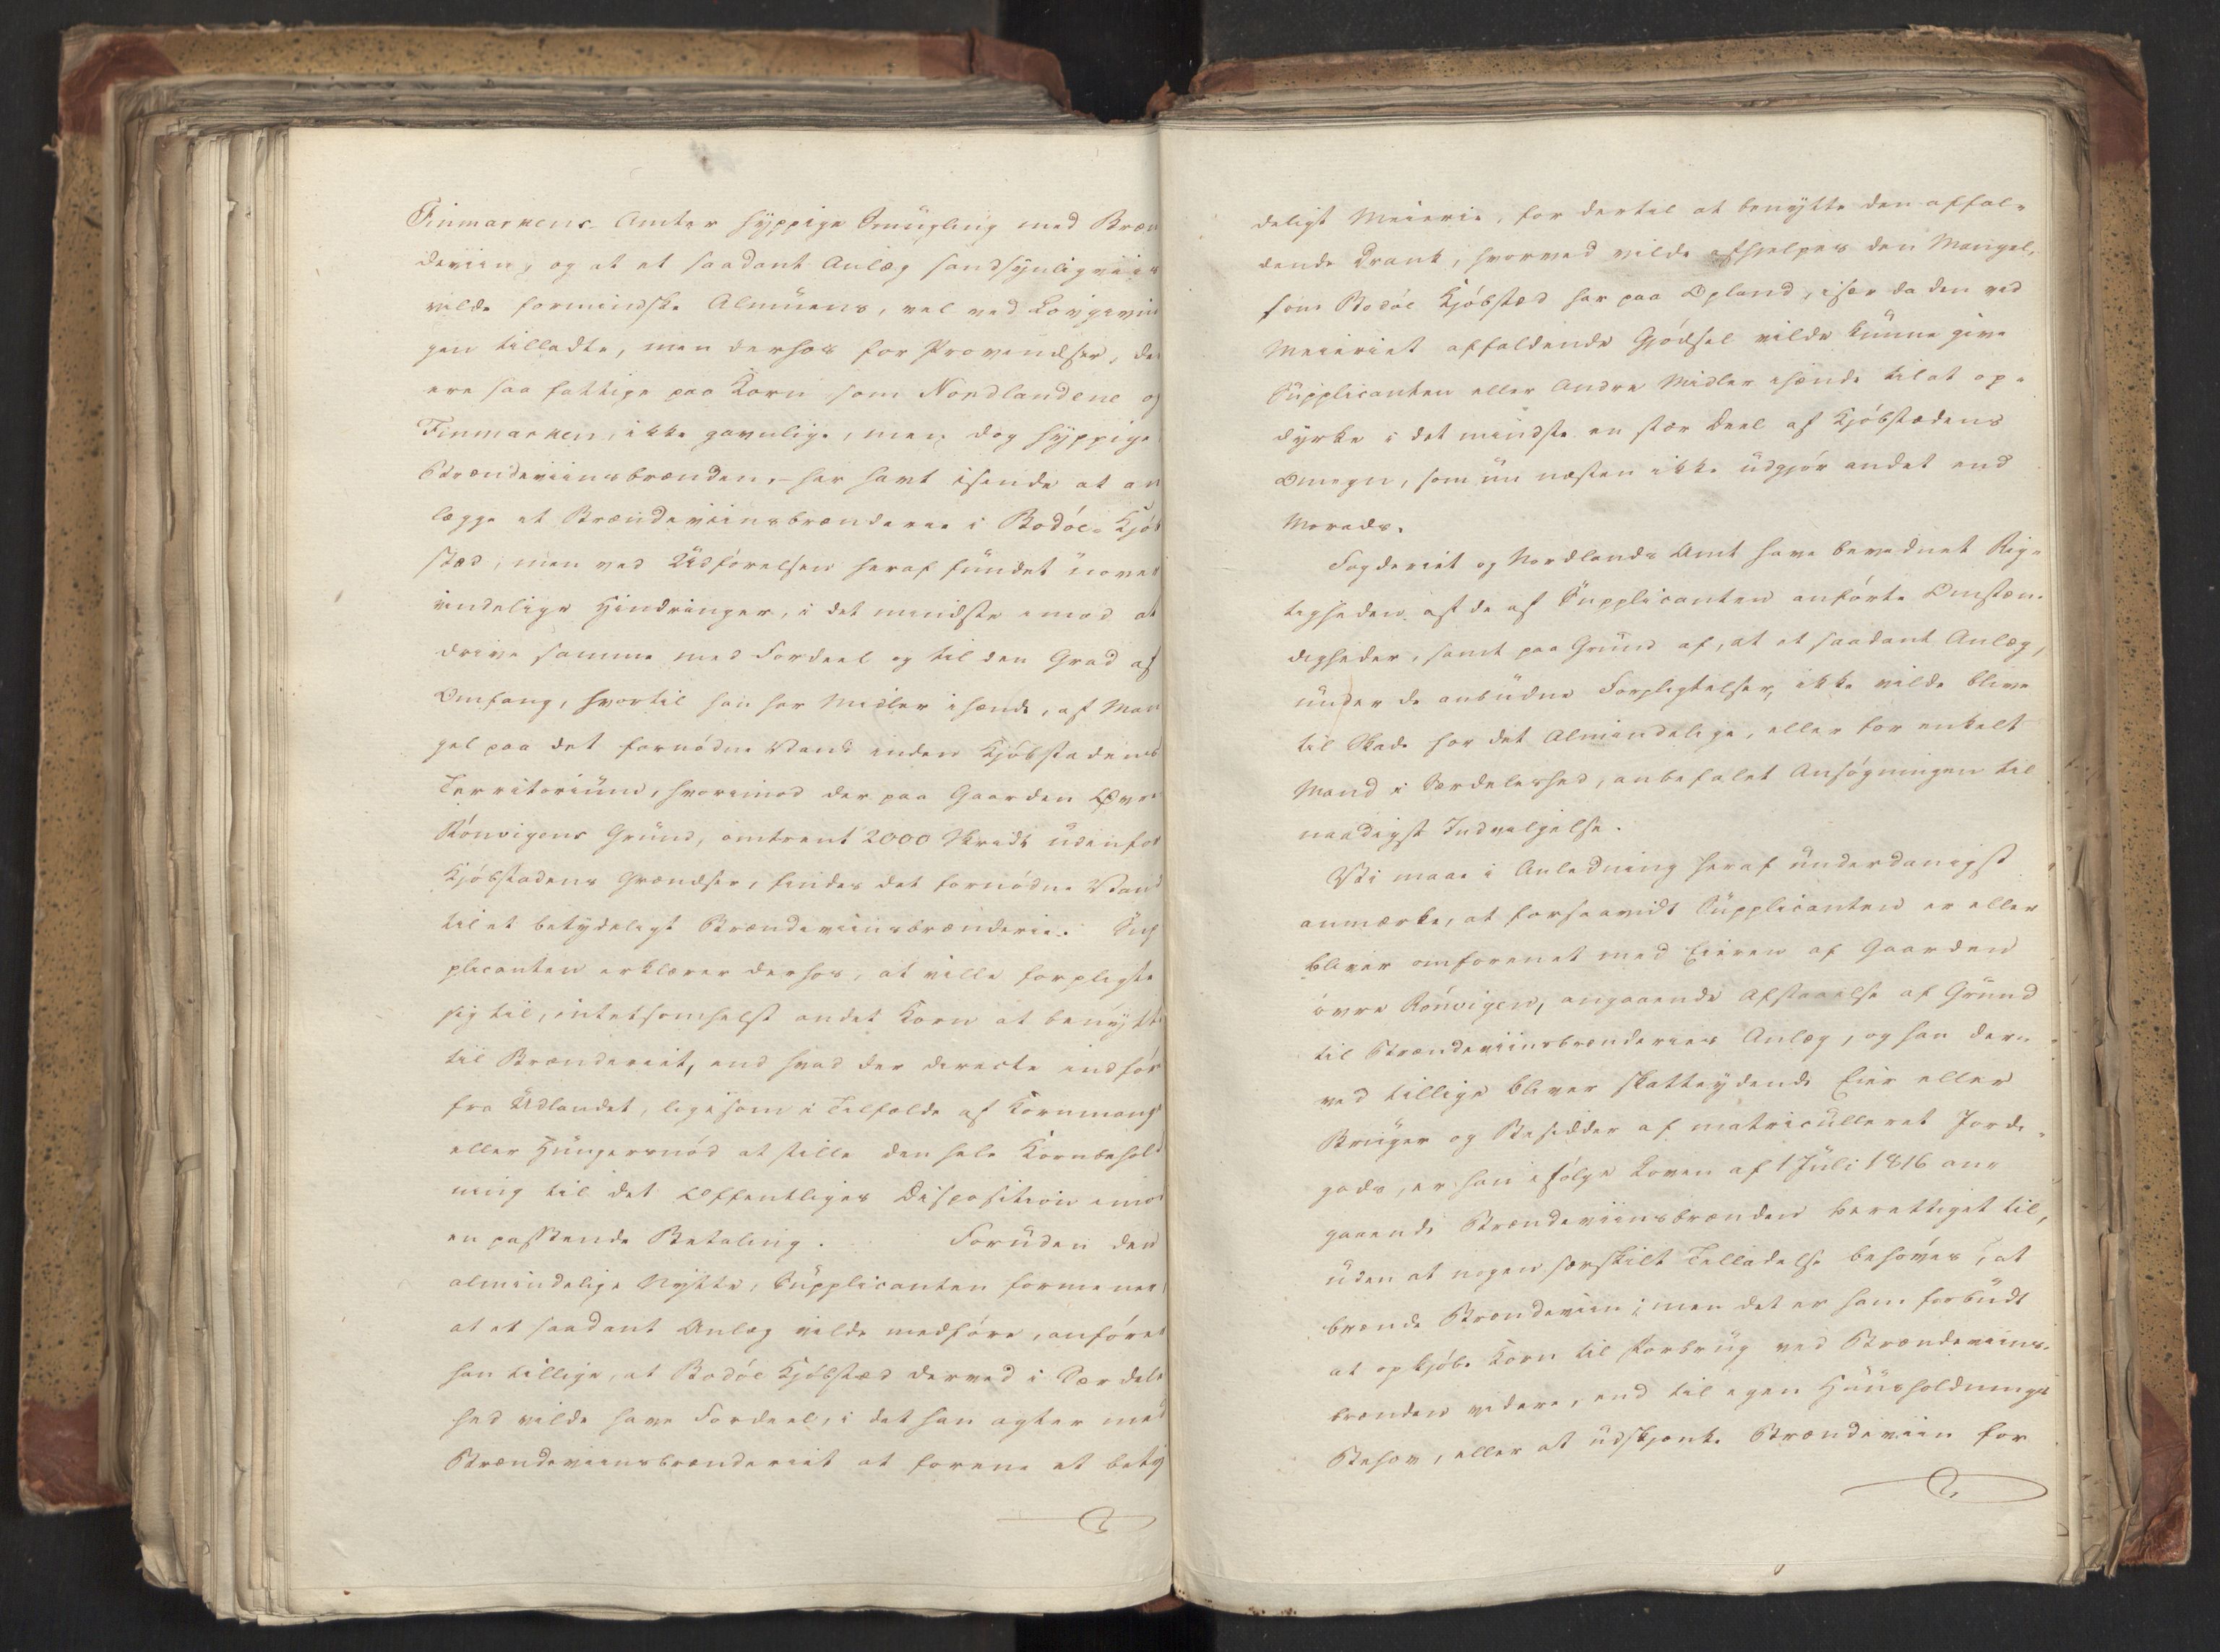 Finmarkens Amter hyppige Smügling med Bræn
deviin, og at et saadant Anlæg sandsynligviis
vilde formindske Almüens, vel ved Lovgivnin
gen tilladte, men derhos for Provindser, der
ere saa fattige paa Korn som Nordlandene og
Finmarken, ikke gavnlige, men dog hyppige
Brændeviinsbrænden, - har havt isinde at an
lægge et Brændeviinsbrænderie i Bodöe Kjöb
stæd, men ved Udförelsen heraf fundet uover
vindelige Hindringer, i det mindste imod at
drive samme med Fordeel og til den Grad af
Omfang, hvortil han har Midler ihænde, af Man
gel paa det fornödne Vand inden Kjöbstadens
Territorium, hvorimod der paa Gaarden Övre
Rönvigens Grund, omtrent 2000 Skridt udenfor
Kjöbstadens Grændser, findes det fornödne Vand
til et betydeligt Brændeviinsbrænderie. Sup
plicanten erklærer derhos, at ville forpligte
sig til, intetsomhelst andet Korn at benytte
til Brænderiet, end hvad der directe indför
fra Udlandet, ligesom i Tilfælde af Kornmang
eller Hungersnöd at stille den hele Kornbehold
ning til det Offentliges Disposition imod
en passende Betaling. Foruden den
almindelige Nytte, Supplicanten formener
at et saadant Anlæg vilde medföre, anförer
han tillige, at Bodöe Kjöbstæd derved i Særdeles
hed vilde have Fordeel, i det han agter med
Brændeviinsbrænderiet at forene et bety
deligt Meierie, for dertil at benytte den affal-
dende Drank, hvorved vilde afhjelpes den Mangel,
som Bodöe Kjöbstæd har paa Opland, især da den ved
Meieriet affaldende Gjödsel vilde kunne give
Supplicanten eller Andre Midler ihænde til at op-
dyrke i det mindste en stor Deel af Kjöbstædens
Omegn, som nu næsten ikke udgjör andet end
Morads.
Fogderiet og Nordlands Amt have bevidnet Rig-
tigheden af de af Supplicanten anförte Omstæn-
digheder, samt paa Grund af, at et saadant Anlæg,
under de anbudne Forpligtelser, ikke vilde blive
til Skade for det Almindelige, eller for enkelt
Mand i Særdeleshed, anbefalet Ansögningen til
naadigst Indvilgelse.
Vi maae i Anledning heraf underdanigst
anmærke, at forsaavidt Supplicanten er eller
bliver omforenet med Eieren af Gaarden
övre Rönvigen, angaaende Afstaaelse af Grund
til Brændeviinsbrænderiets Anlæg, og han der-
ved tillige bliver skatteydende Eier eller
Bruger og Besidder af matriculleret Jorde-
gods, er han ifölge Loven af 1 Juli 1816 an-
gaaende Brændeviinsbrænden berettiget til,
uden at nogen særskilt Tilladelse behöves, at
brænde Brændeviin; men det er ham forbudt
at opkjöbe Korn til Forbrug ved Brændeviins-
brænden videre, end til egen Huusholdnings
Behov, eller at udskjenke Brændeviin for